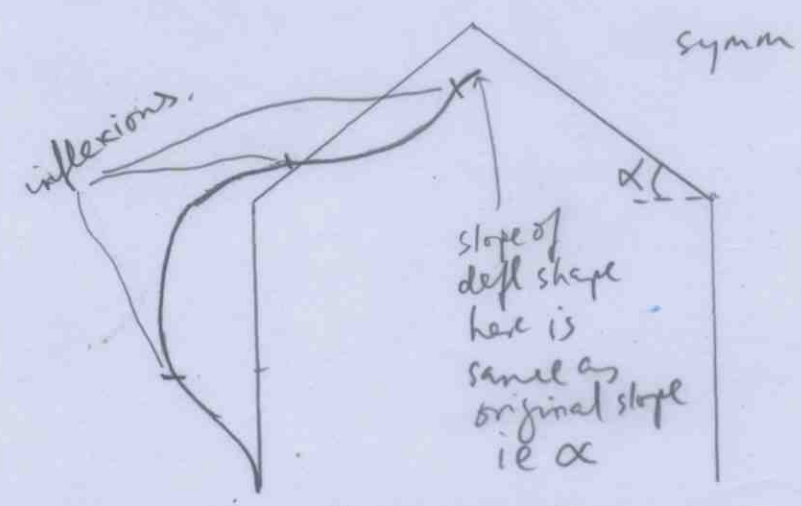 symm
inflexions.
α
slope of
defl shape
here is
same as
original slope
ie α